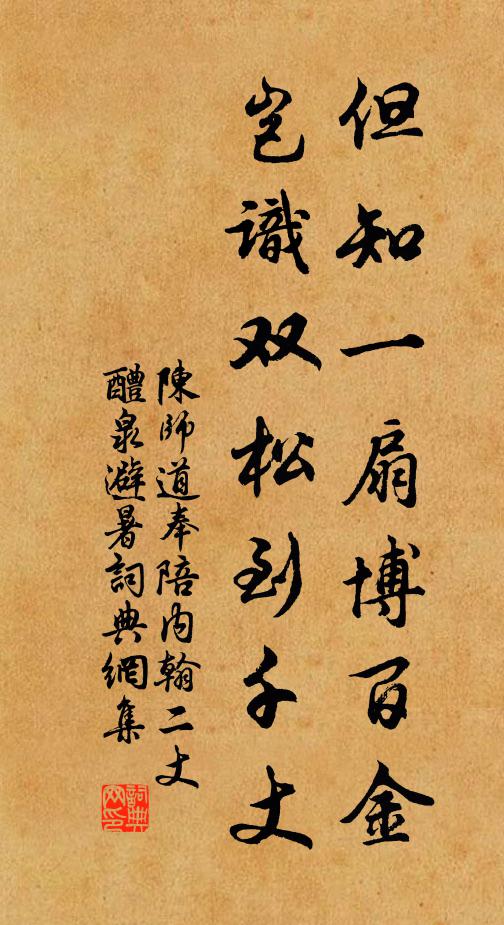 但知一扇博百金
岂識双松到千丈
陳師道奉陪内翰二丈
醴泉避暑詞典網集
詞典
网印